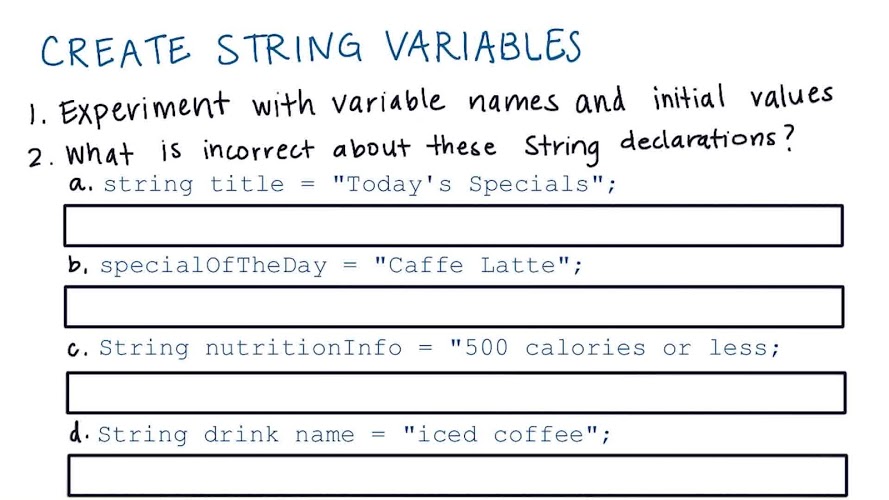 CREATE STRING VARIABLES
1. Experiment with variable names and initial values
2. What is incorrect about these String declarations?
a. string title = "Today's Specials";
b. specialOfTheDay = "Caffe Latte";
c. String nutritionInfo = "500 calories or less;
d. String drink name = "iced coffee";